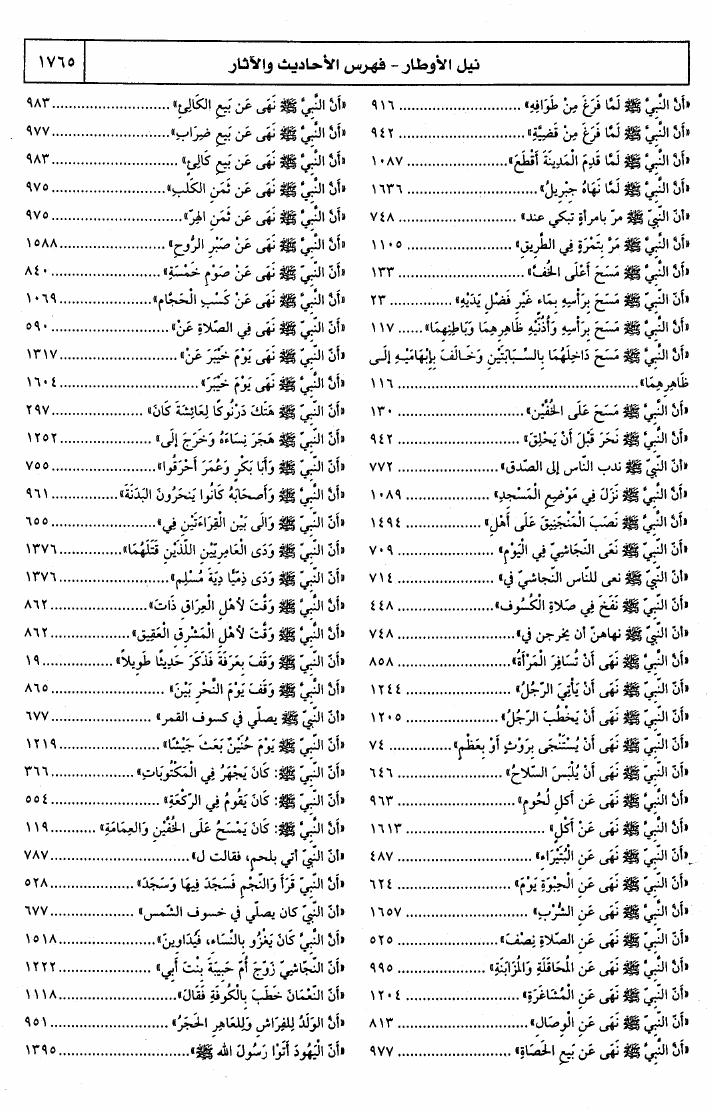 نيل الأوطار - فهرس الأحاديث والآثار
١٧٦٥
«أَنَّ النَّبِيَّ ﷺ لَمَّا فَرَغَ مِنْ طَوَافِهِ» ........ ٩١٦
«أَنَّ النَّبِيَّ ﷺ لَمَّا فَرَغَ مِنْ قَضِيَّةِ» ........ ٩٤٢
«أَنَّ النَّبِيَّ ﷺ لَمَّا قَدِمَ الْمَدِينَةَ أَقْطَعَ» ........ ١٠٨٧
«أَنَّ النَّبِيَّ ﷺ لَمَّا نَهَاهُ جِبْرِيلُ» ........ ١٦٣٦
«أنّ النّبيّ ﷺ مرّ بامرأةٍ تبكي عند» ........ ٧٤٨
«أَنَّ النَّبِيَّ ﷺ مَرَّ بِتَمْرَةٍ فِي الطَّرِيقِ» ........ ١١٠٥
«أَنَّ النَّبِيَّ ﷺ مَسَحَ أَعْلَى الخُفِّ» ........ ١٣٣
«أَنَّ النَّبِيَّ ﷺ مَسَحَ بِرَأْسِهِ بِمَاء غَيْرِ فَضْلِ يَدَيْهِ» ........ ٢٣
«أَنَّ النَّبِيَّ ﷺ مَسَحَ بِرَأْسِهِ وَأُذُنَيْهِ ظَاهِرِهِمَا وَبَاطِنِهِمَا» ...... ١١٧
«أَنَّ النَّبِيَّ ﷺ مَسَحَ دَاخِلَهُمَا بِالسَّبَّابَتَيْنِ وَخَالَفَ بِإِبْهَامَيْهِ إِلَى
ظَاهِرِهِمَا» ........ ١١٦
«أَنَّ النَّبِيَّ ﷺ مَسَحَ عَلَى الخُفَّيْنِ» ........ ١٣٠
«أَنَّ النَّبِيَّ ﷺ نَحَرَ قَبْلَ أَنْ يَحْلِقَ» ........ ٩٤٢
«أنّ النّبيّ ﷺ ندب الناس إلى الصدق» ........ ٧٧٢
«أَنَّ النَّبِيَّ ﷺ نَزَلَ فِي مَوْضِعِ الْمَسْجِدِ» ........ ١٠٨٩
«أَنَّ النَّبِيَّ ﷺ نَصَبَ الْمَنْجَنِيقَ عَلَى أَهْلِ» ........ ١٤٩٤
«أَنَّ النَّبِيَّ ﷺ نَعَى النَّجَاشِيَّ فِي الْيَوْمِ» ........ ٧٠٩
«أنّ النّبيّ ﷺ نعى للنّاس النجاشيّ في» ........ ٧١٤
«أَنَّ النَّبِيَّ ﷺ نَفَخَ فِي صَلاةِ الْكُسُوفِ» ........ ٤٤٨
«أنّ النّبيّ ﷺ نهاهنّ أن يخرجن في» ........ ٧٤٨
«أَنَّ النَّبِيَّ ﷺ نَهَى أَنْ تُسَافِرَ الْمَرْأَةُ» ........ ٨٥٨
«أَنَّ النَّبِيَّ ﷺ نَهَى أَنْ يَأْتِيَ الرَّجُلُ» ........ ١٢٤٤
«أَنَّ النَّبِيَّ ﷺ نَهَى أَنْ يَخْطُبَ الرَّجُلُ» ........ ١٢٠٥
«أَنَّ النَّبِيَّ ﷺ نَهَى أَنْ يُسْتَنْجَى بِرَوْثٍ أَوْ بِعَظْمٍ» ........ ٧٤
«أَنَّ النَّبِيَّ ﷺ نَهَى أَنْ يُلْبَسَ السِّلاحُ» ........ ٦٤٦
«أَنَّ النَّبِيَّ ﷺ نَهَى عَن أَكلِ لُحُومِ» ........ ٩٦٣
«أَنَّ النَّبِيَّ ﷺ نَهَى عَنْ أَكْلِ» ........ ١٦١٣
«أَنَّ النَّبِيَّ ﷺ نَهَى عَنِ الْبُتَيْرَاءِ» ........ ٤٨٧
«أَنَّ النَّبِيَّ ﷺ نَهَى عَنِ الحِبْوَةِ يَوْمَ» ........ ٦٢٤
«أَنَّ النَّبِيَّ ﷺ نَهَى عَنِ الشُّرْبِ» ........ ١٦٥٧
«أَنَّ النَّبِيَّ ﷺ نَهَى عَنِ الصَّلاةِ نِصْفَ» ........ ٥٢٥
«أَنَّ النَّبِيَّ ﷺ نَهَى عَنِ المُحَاقَلَةِ وَالْمُزَابَنَةِ» ........ ٩٩٥
«أَنَّ النَّبِيَّ ﷺ نَهَى عَنِ الْمُشَاغَرَةِ» ........ ١٢٠٤
«أَنَّ النَّبِيَّ ﷺ نَهَى عَنِ الْوِصَالِ» ........ ٨١٣
«أَنَّ النَّبِيَّ ﷺ نَهَى عَنْ بَيعِ الحَصَاةِ» ........ ٩٧٧
«أَنَّ النَّبِيَّ ﷺ نَهَى عَن بَيعِ الكَالِئِ» ........ ٩٨٣
«أَنَّ النَّبِيَّ ﷺ نَهَى عَن بَيْعِ ضِرَابِ» ........ ٩٧٧
«أَنَّ النَّبِيَّ ﷺ نَهَى عَن بَيعِ كَالِئٍ» ........ ٩٨٣
«أَنَّ النَّبِيَّ ﷺ نَهَى عَن ثَمَنِ الكَلْبِ» ........ ٩٧٥
«أَنَّ النَّبِيَّ ﷺ نَهَى عَن ثَمَنِ الهِرِّ» ........ ٩٧٥
«أَنَّ النَّبِيَّ ﷺ نَهَى عَنْ صَبْرِ الرُّوحِ» ........ ١٥٨٨
«أَنَّ النَّبِيَّ ﷺ نَهَى عَنْ صَوْمِ خَمْسَةِ» ........ ٨٤٠
«أَنَّ النَّبِيَّ ﷺ نَهَى عَنْ كَسْبِ الْحَجَّامِ» ........ ١٠٦٩
«أَنَّ النَّبِيَّ ﷺ نَهَى فِي الصَّلاةِ عَنْ» ........ ٥٩٠
«أَنَّ النَّبِيَّ ﷺ نَهَى يَوْمَ خَيْبَرَ عَنْ» ........ ١٣١٧
«أَنَّ النَّبِيَّ ﷺ نَهَى يَوْمَ خَيْبَرَ» ........ ١٦٠٤
«أَنَّ النَّبِيَّ ﷺ هَتَكَ دَرْنُوكًا لِعَائِشَةَ كَانَ» ........ ٢٩٧
«أَنَّ النَّبِيَّ ﷺ هَجَرَ نِسَاءَهُ وَخَرَجَ إِلَى» ........ ١٢٥٢
«أَنَّ النَّبِيَّ ﷺ وَأَبَا بَكْرٍ وَعُمَرَ أَحْرَقُوا» ........ ٧٥٥
«أَنَّ النَّبِيَّ ﷺ وَأَصْحَابَهُ كَانُوا يَنحَرُونَ البَدَنَةَ» ........ ٩٦١
«أَنَّ النَّبِيَّ ﷺ وَالَى بَيْنَ الْقِرَاءَتَيْنِ فِي» ........ ٦٥٥
«أَنَّ النَّبِيَّ ﷺ وَدَى الْعَامِرِيَّيْنِ اللَّذَيْنِ قَتَلَهُمَا» ........ ١٣٧٦
«أَنَّ النَّبِيَّ ﷺ وَدَى ذِمِّيًّا دِيَةَ مُسْلِمٍ» ........ ١٣٧٦
«أَنَّ النَّبِيَّ ﷺ وَقَّتَ لأَهْلِ العِرَاقِ ذَاتَ» ........ ٨٦٢
«أَنَّ النَّبِيَّ ﷺ وَقَّتَ لأَهْلِ الْمَشْرِقِ العَقِيقَ» ........ ٨٦٢
«أَنَّ النَّبِيَّ ﷺ وَقَفَ بِعَرَفَةَ فَذَكَرَ حَدِيثًا طَوِيلاً» ........ ١٩
«أَنَّ النَّبِيَّ ﷺ وَقَفَ يَوْمَ النَّحْرِ بَيْنَ» ........ ٨٦٥
«أنّ النّبيّ ﷺ يصلّي في كسوف القمر» ........ ٦٧٧
«أَنَّ النَّبِيَّ ﷺ يَوْمَ حُنَيْنٍ بَعَثَ جَيْشًا» ........ ١٢١٩
«أَنَّ النَّبِيَّ ﷺ: كَانَ يَجْهَرُ فِي الْمَكْتُوبَاتِ» ........ ٣٦٦
«أَنَّ النَّبِيَّ ﷺ: كَانَ يَقُومُ فِي الرَّكْعَةِ» ........ ٥٥٤
«أَنَّ النَّبِيَّ ﷺ: كَانَ يَمْسَحُ عَلَى الخُفَّيْنِ وَالعِمَامَةِ» ........ ١١٩
«أنّ النّبيّ أتي بلحمٍ، فقالت ل» ........ ٧٨٧
«أَنَّ النَّبِيَّ قَرَأَ وَالنَّجْمِ فَسَجَدَ فِيهَا وَسَجَدَ» ........ ٥٢٨
«أنّ النّبيّ كان يصلّي في خسوف الشّمس» ........ ٦٧٧
«أَنَّ النَّبِيَّ كَانَ يَغْزُو بِالنِّسَاءِ، فَيُدَاوِينَ» ........ ١٥١٨
«أَنَّ النَّجَاشِيَّ زَوَّجَ أُمَّ حَبِيبَةَ بِنْتَ أَبِي» ........ ١٢٢٢
«أَنَّ النُّعْمَانَ خَطَبَ بِالْكُوفَةِ فَقَالَ» ........ ١١١٨
«أَنَّ الوَلَدُ لِلفِرَاشِ وَلِلعَاهِرِ الحَجَرُ» ........ ٩٥١
«أَنَّ الْيَهُودَ أَتَوْا رَسُولَ الله ﷺ» ........ ١٣٩٥